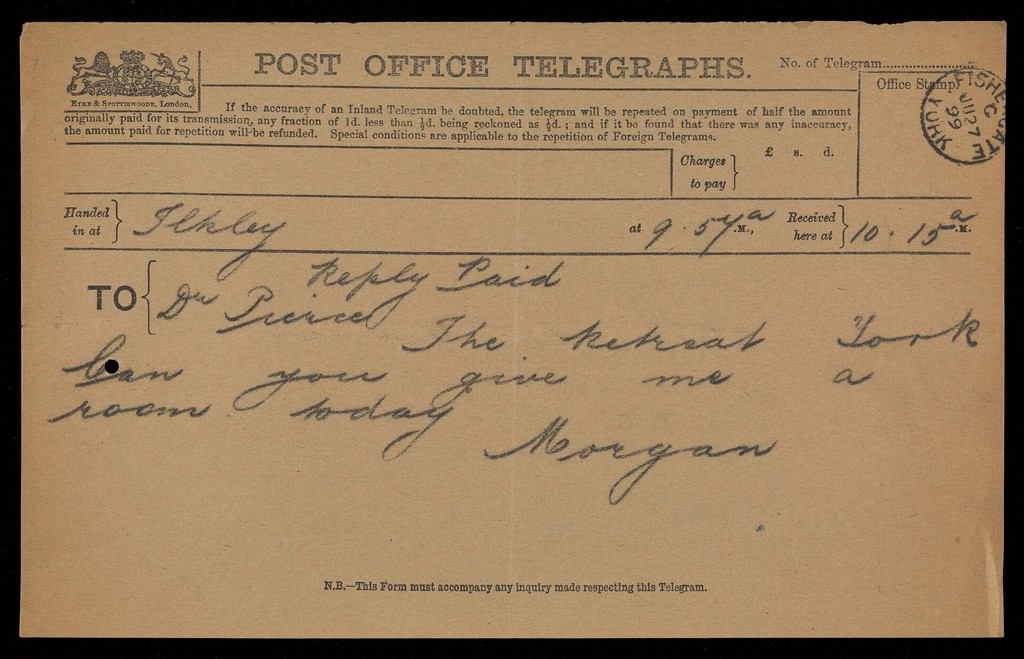 POST OFFICE TELEGRAPHS.
No. of Telegram
EYRE & SPOTTISWOODE, London.
Office Stamp.
FISHERGATE YORK
C
JU 27
99
If the accuracy of an Inland Telegram be doubted, the telegram will be repeated on payment of half the amount
originally paid for its transmission, any fraction of 1d. less than ½d. being reckoned as ½d.; and if it be found that there was any inaccuracy,
the amount paid for repetition will be refunded. Special conditions are applicable to the repetition of Foreign Telegrams.
Charges to pay } £ s. d.
Handed in at } Ilkley at 9.57 a .M., Received here at } 10.15 a .M.
Reply Paid
TO { Dr Pierce The Retreat York
Can you give me a
room today
Morgan
N.B.—This Form must accompany any inquiry made respecting this Telegram.